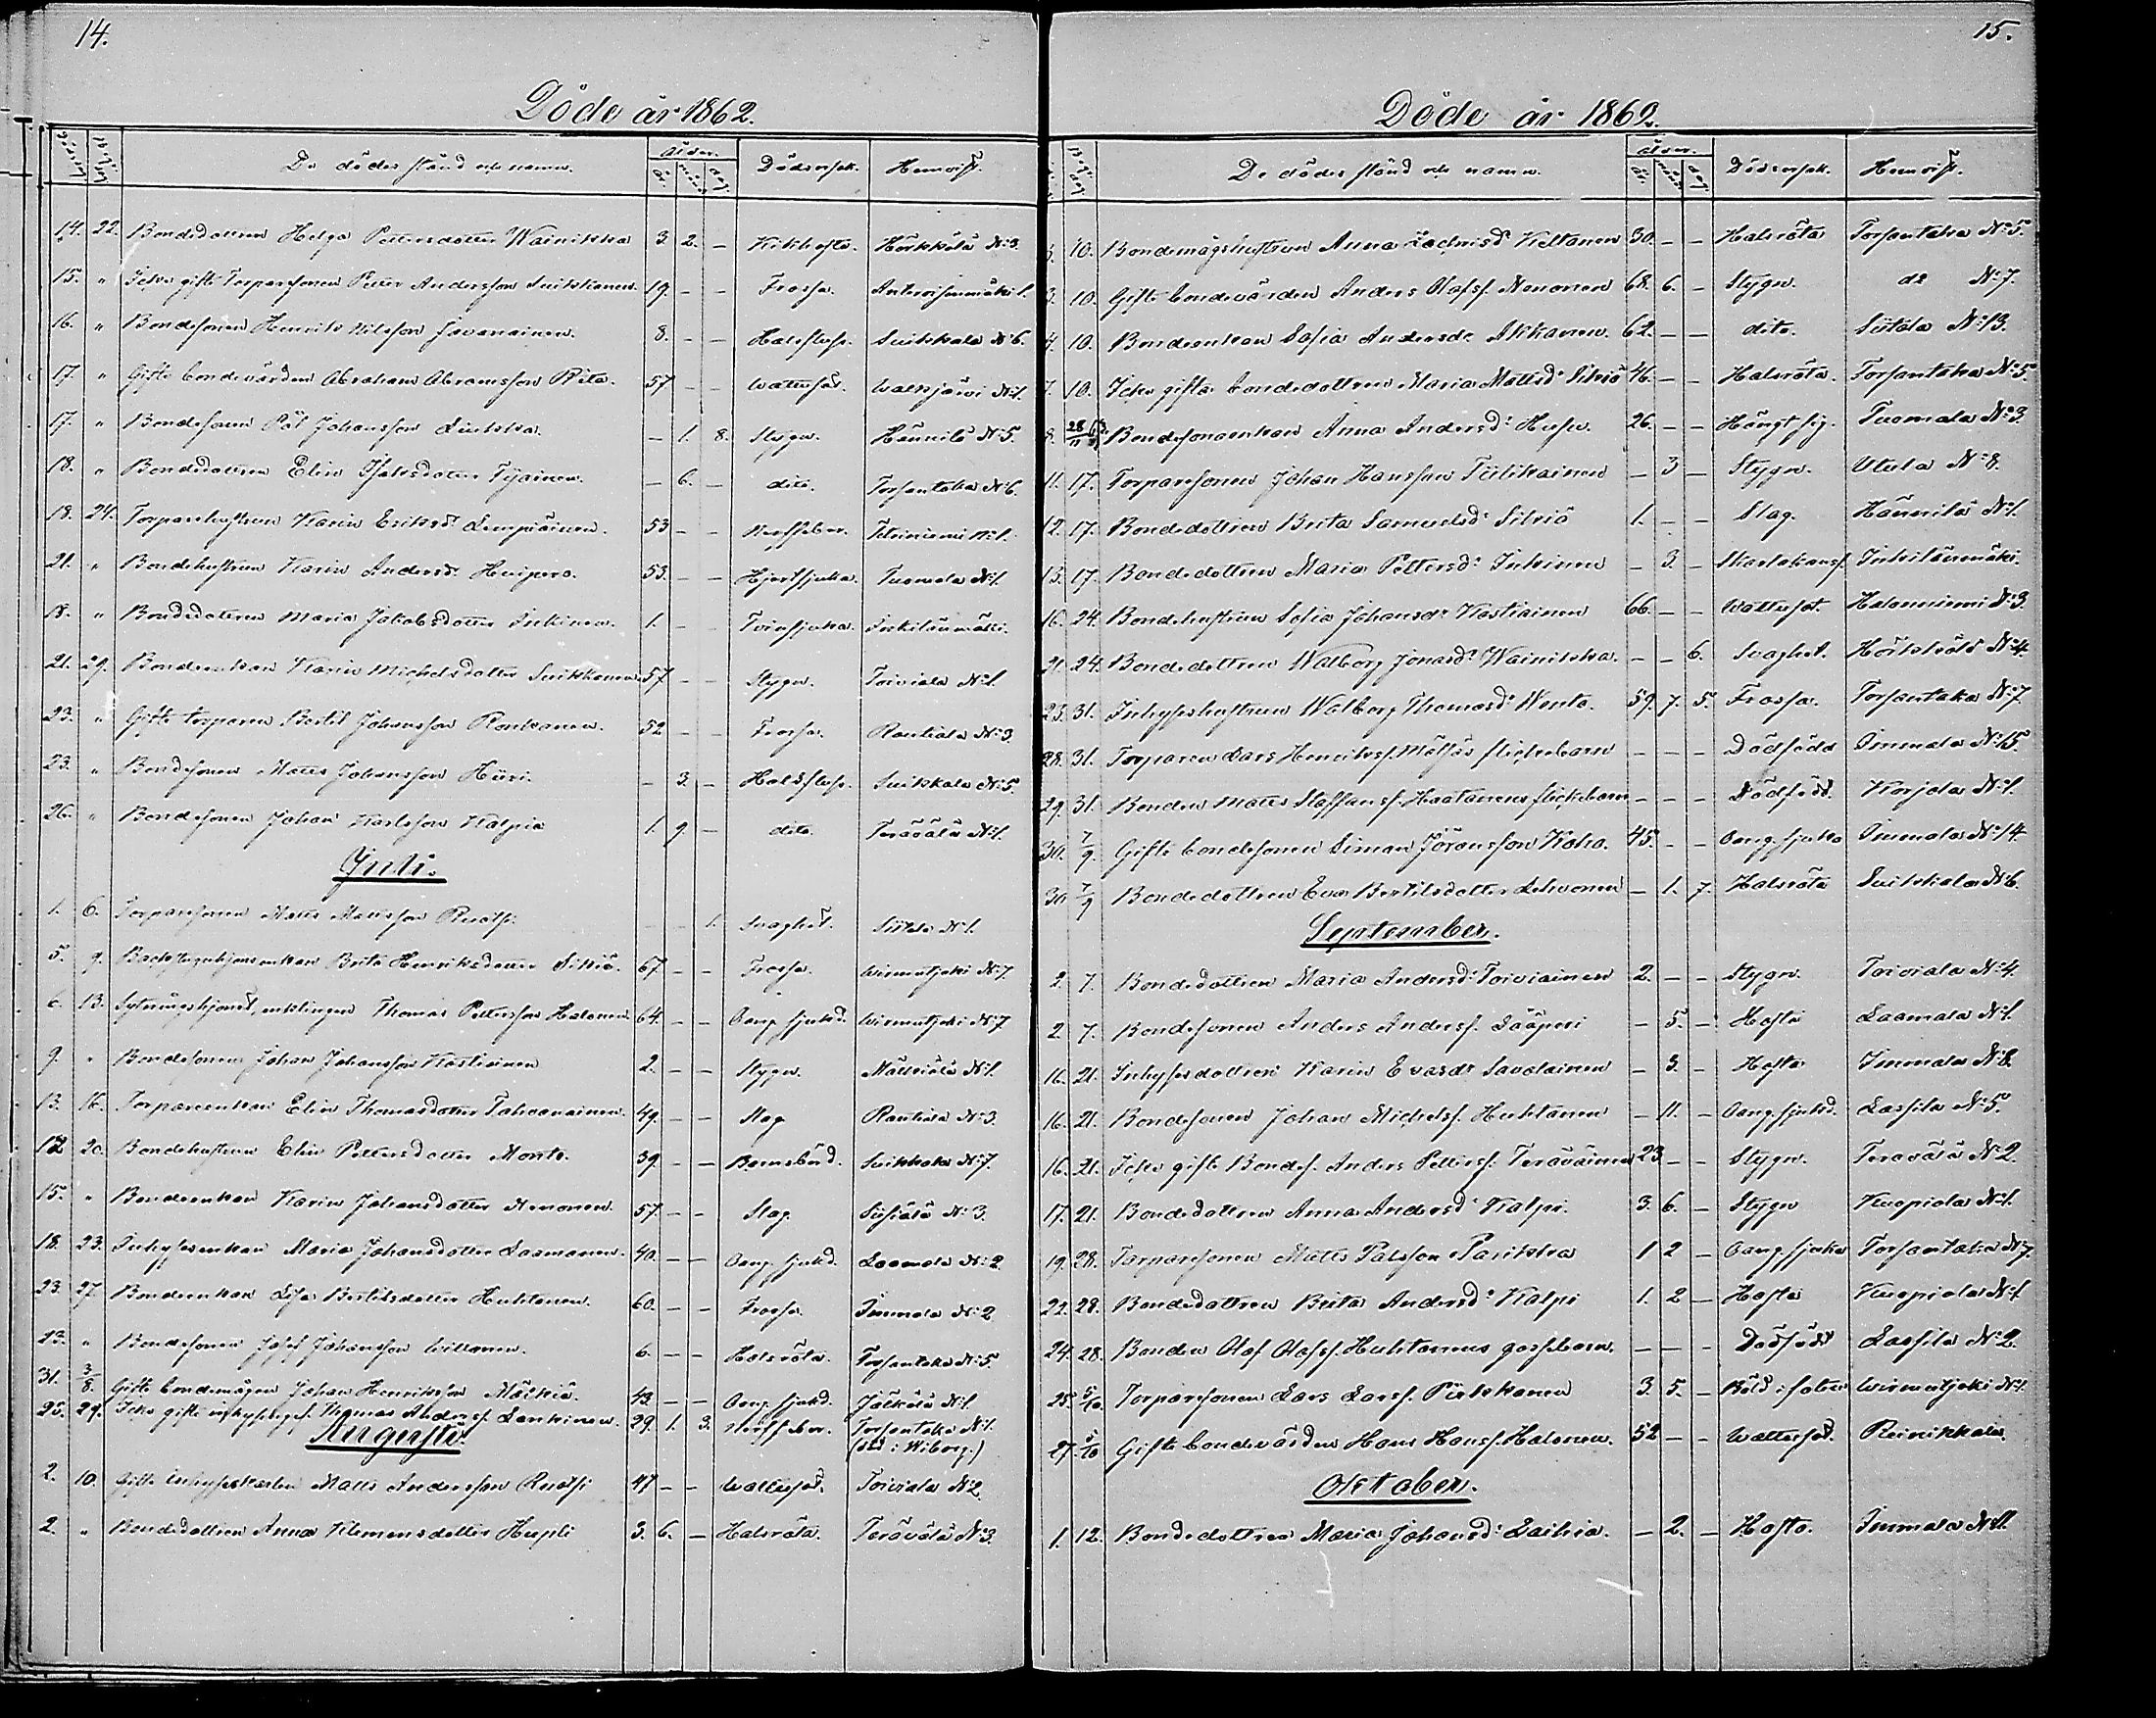 14.
Döde år 1862.
De dödes stånd och namn. Ålder. Dödsorsak. Hemvist.
år. mån. dag.
14. 22. Bondedottren Helga Pettersdotter Wainikka 3. 2. – Kikhosta. Hörkkölä No 3.
15. " Icke gifte Torparesonen Petter Andersson Suikkanen. 19. – – Frossa.
16. " Bondesonen Henrik Nilsson Javanainen. 8. – – Halsfluss. Suikkala No 6.
17. " Gifte bondevärden Abraham Abramsson Pita. 57 – – Wattusot. Walkjärvi No 1.
17. " Bondesonen Pål Johansson – 1. 8. Stygn. Hännilä No 5.
18. " Bondedottren Elin Isaksdotter Tyjainen. – 6. – dito. Torsantaka No 6.
18. 24. Torparehustrun Karin Eriksd: Lempiäinen. 53 – –
21. " Bondehustrun Karin Andersd: Huipero. 53. – – Hjertsjuka. Tuomala No 1.
18. " Bondedottren Maria Jakobsdotter Inkinen. 1. – – Inkilänmäki.
21. 29. Bondeenkan Karin Michelsdotter Suikkanen 57 – – Stygn. Toiviala No 1.
23. " Gifte torparen Bertil Johansson Ronkanen. 52 – – Frossa. Rautiala No 3.
23. " Bondesonen Matts Johansson Hüri. – 3. – Halsfluss. Suikkala No 5.
26. " Bondesonen Johan Karlsson Kalpia 1. 9. – dito. Terävälä No 1.
Juli.
1. 6. Torparesonen Matts Mattsson Ruotsi. – – 1. Svaghet. Siitola No 1.
5. 9. Brita Henriksdotter Silviö. 67. – – Frossa. Wirmutjoki No 7
6. 13. Sytningshjonet, enklingen Thomas Pettersson Halonen 64. – – Bang. sjukd. Wirmutjoki No 7
9. " Bondesonen Johan Johansson Kostiainen 2. – – Stygn. Mälkiälä No 1.
13. 16. Torpareenkan Elin Thomasdotter Tahvanainen. 49. – – Slag Rautiala No 3.
12 20. Bondehustrun Elin Pettersdotter Monto. 39. – – Barnsbörd. Suikkala No 7.
15. " Bondeenkan Karin Johansdotter Nenonen. 57 – – Slag. Siisiälä No 3.
18. 23. Inhysesenkan Maria Johansdotter Laamanen. 40. – – Bang. sjukd. Laamala No 2.
23. 27 Bondeenkan Lisa Bertilsdotter Huhtanen. 60. – – Frossa. Immala No 2
23. " Bondesonen Josef Johansson Willanen. 6. – – Halsröta. Torsantaka No 5.
31. 3/8. Gifte bondemågen Johan Henriksson Mälkiä. 43. – – Bang. sjukd. Jälkölä No 1.
25. 29. Icke gifte Thomas Anderss. Lankinen. 29. 1. 3. Torsantaka No 1.
(död i Wiborg.)
Augusti.
2. 10. Gifte inhyseskarlen Matts Andersson Ruotsi 47 – – Wattusot. Toiviala No 2.
2. " Bondedottren Anna Klemensdotter Hupli 3. 6. – Halsröta. Terävälä No 3.
15.
Döde år 1862.
De dödes stånd och namn. Ålder. Dödsorsak. Hemvist.
år. mån. dag.
3. 10. Bondemågshustrun Anna Zachrisd: Keltanen 30. – – Halsröta Torsantaka No 5.
3. 10. Gifte bondevärden Anders Olofss. Nenonen 68. 6. – Stygn. do No 7.
4. 10. Bondeenkan Sofia Andersdr Akkanen. 62. – – dito. Siitola No 13.
7. 10. Icke gifta bondedottren Maria Mattsdr Silviö 46. – – Halsröta. Torsantaka No 5.
8. 28/11 63. Bondesonenkan Anna Andersd: Husu. 26. – – Hängt sig. Tuomala No 3.
11. 17. Torparesonen Johan Hansson Tiilikainen – 3 – Stygn. Utula No 8.
12. 17. Bondedottren Brita Samuelsd: Silviö 1. – – Slag. Hännilä No 1.
13. 17. Bondedottren Maria Pettersd: Inkinen – 3. – Inkilänmäki.
16. 24. Bondehustrun Sofia Johansdr Kostiainen 66. – – Wattusot. Haloniemi No 3.
21. 24. Bondedottren Walborg Jonasd: Wainikka. – – 6. Svaghet. Hörkkölä No 4.
23. 31. Inhyseshustrun Walborg Thomasd: Wento. 59. 7. 5. Frossa. Torsantaka No 7
28. 31. Torparen Lars Henrikss. Mälsäs flickebarn – – – Dödfödd Immala No 15.
29. 31. Bonden Matts Staffanss. Haatanens flickebarn – – – Dödfödd. Korjola No 1.
30. 7/9. Gifte bondesonen Simon Jöransson Koho. 45. – – Bang. sjukd Immala No 14.
30 7/9 Bondedottren Eva Bertilsdotter Lehvonen – 1. 7. Halsröta Suikkala No 6.
September.
2. 7. Bondedottren Maria Andersd: Toiviainen 2. – – Stygn. Toiviala No 4.
2. 7. Bondesonen Anders Anderss. Lääperi – 5. – Hosta Laamala No 1.
16. 21. Inhysesdottren Karin Evasdr Savolainen – 3. – Hosta Immala No 8.
16. 21. Bondesonen Johan Michelss. Huhtanen – 11. – Bang. sjukd. Lassila No 5.
16. 21. Icke gifte Bondes. Anders Petterss. Terävainen 23 – – Stygn. Terävälä No 2.
17. 21. Bondedottren Anna Andersd: Kalpi. 3. 6. – Stygn Kuopiola No 1.
19. 28. Torparesonen Matts Pålsson Parikka 1 2 – Bang. sjukd Torsantaka No 7.
22. 28. Bondedottren Brita Andersd: Kalpi 1. 2 – Hosta Kuopiola No 1
24. 28. Bonden Olof Olofss. Huhtanens gossebarn. – – – Dödfödt Lassila No 2.
25. 5/10. Torparesonen Lars Larss. Pirkkanen 3. 5. – Wirmutjoki No 1.
27. 5/10 Gifte bondevärden Hans Hanss. Halonen. 52 – – Wattusot. Reinikkala.
Oktober.
1. 12. Bondedottren Maria Johansd: Laihia. – 2. – Hosta. Immala No 11.